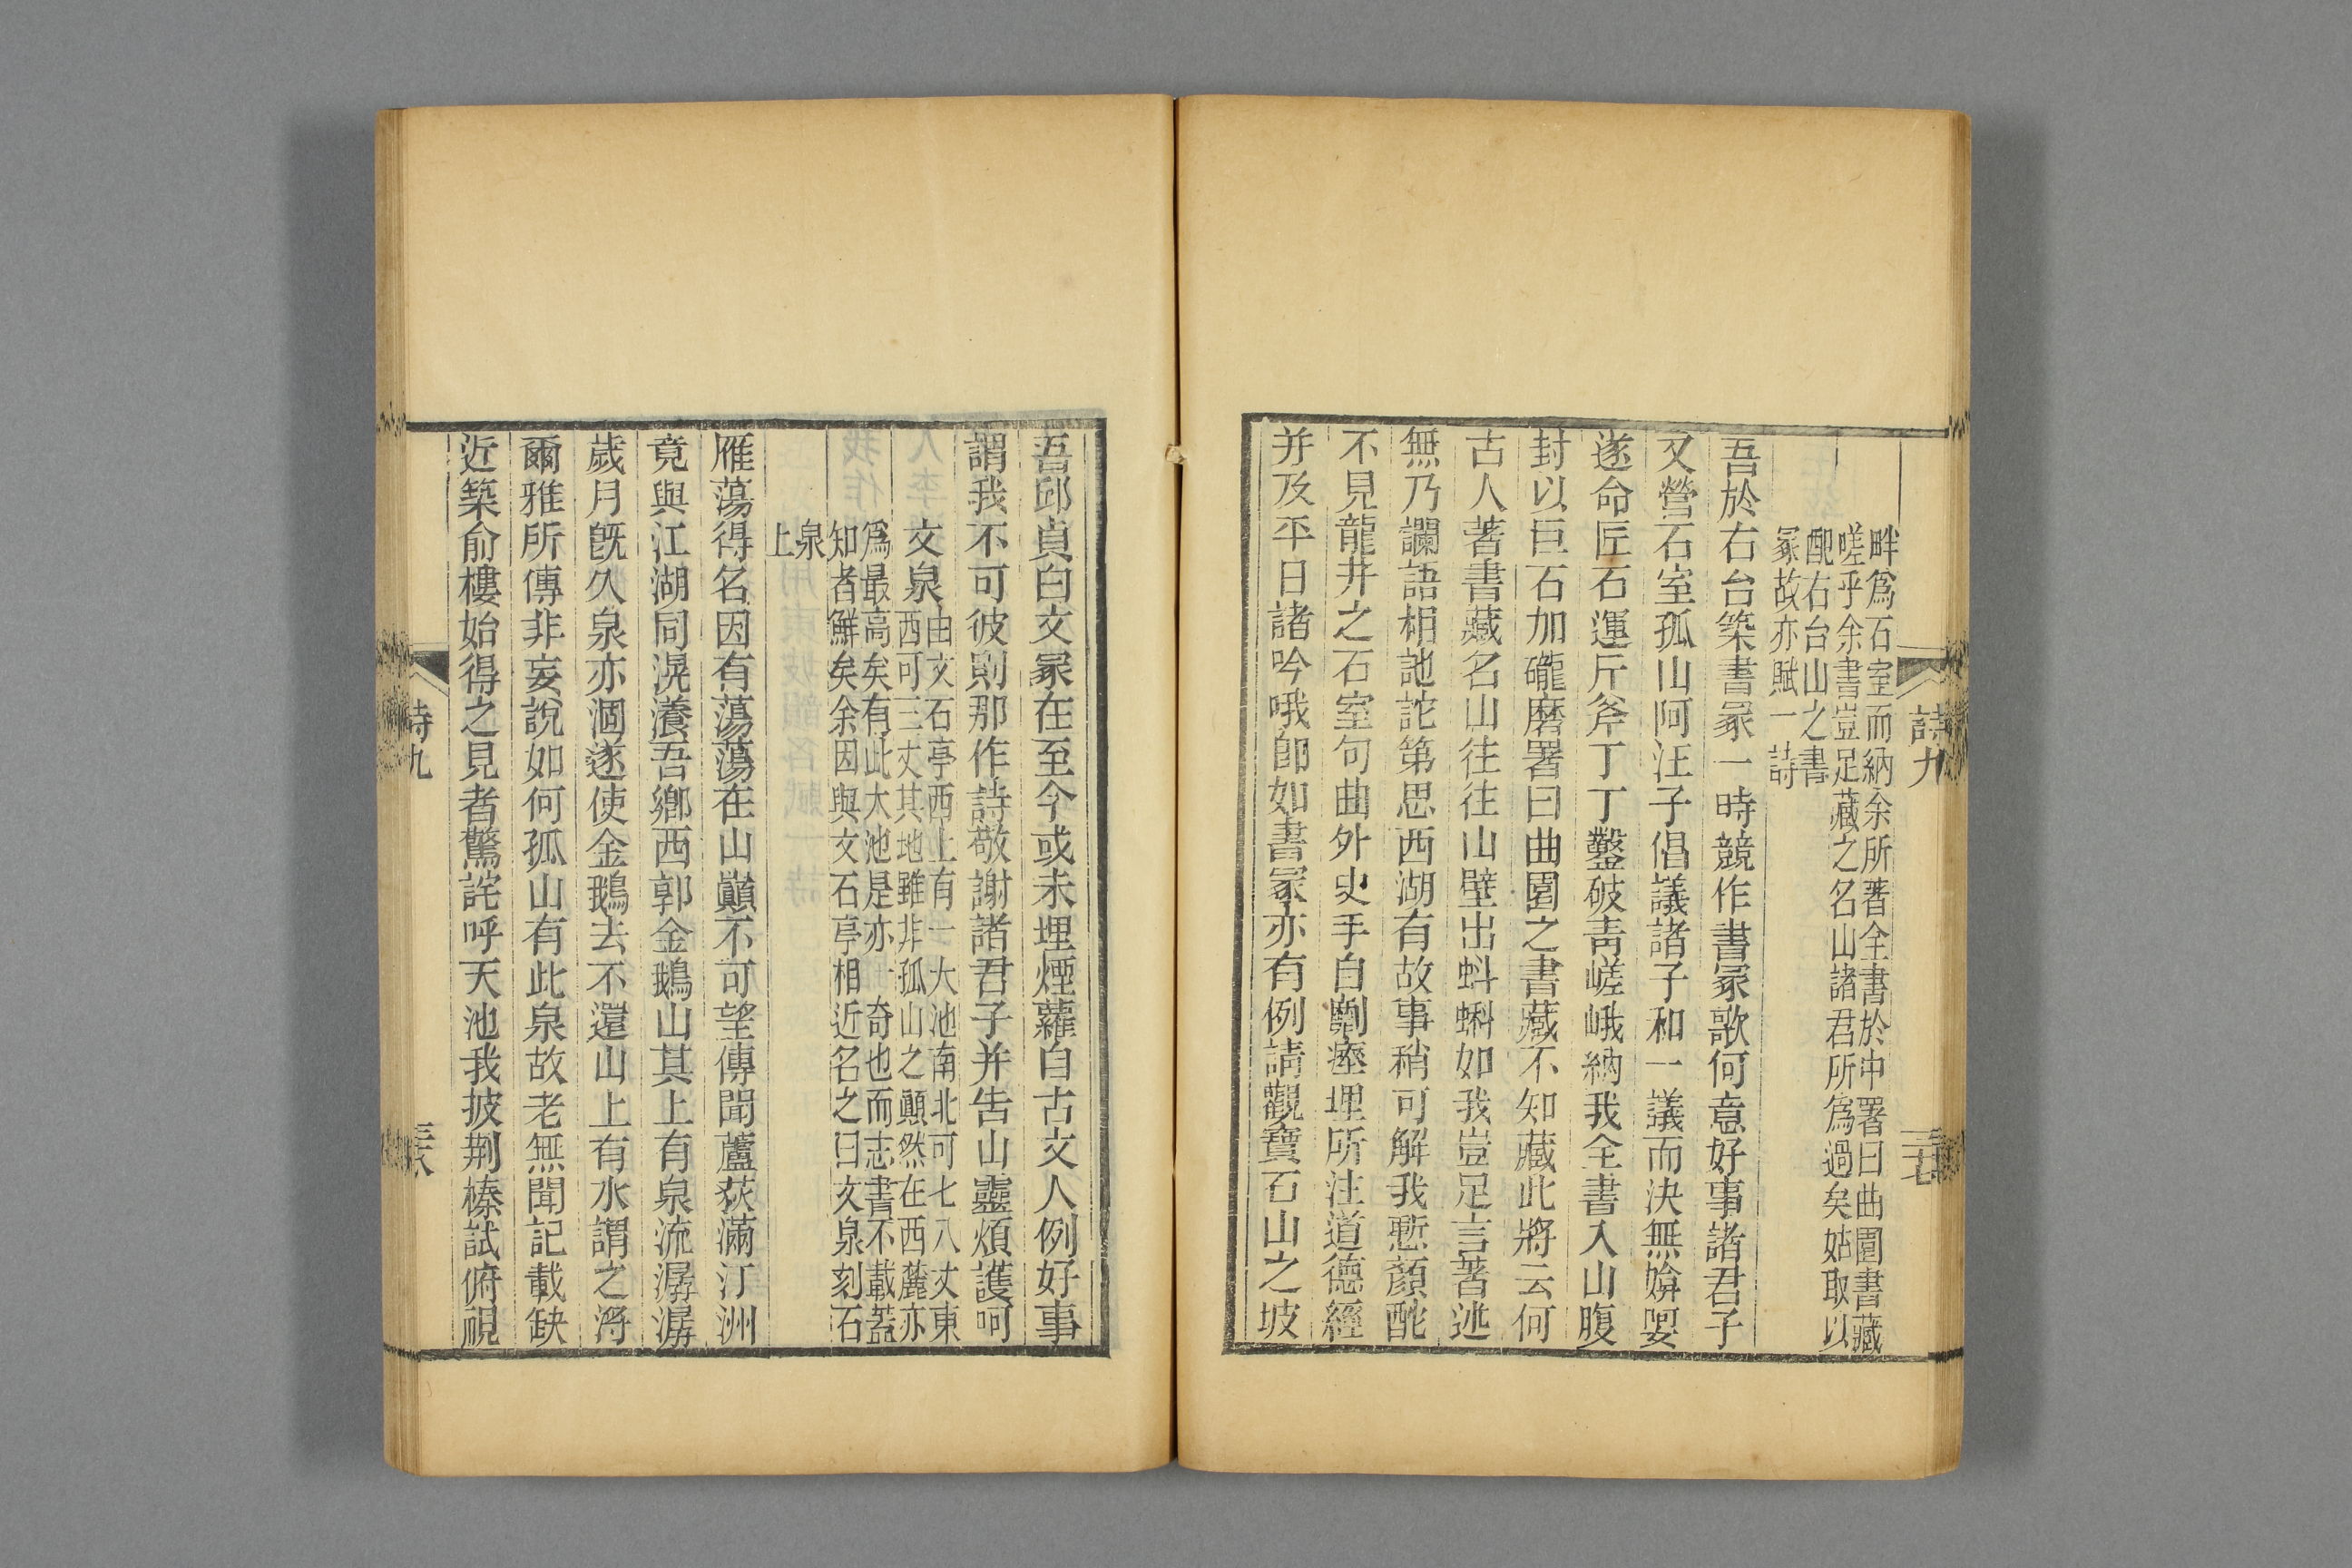 詩九
三十七
畔爲石室而納余所著全書於中署曰曲園書藏
嗟乎余書豈足藏之名山諸君所爲過矣姑取以
配右台山之書
冢故亦賦一詩
吾於右台築書冢一時競作書冢歌何意好事諸君子
又營石室孤山阿汪子倡議諸子和一議而決無媕娿
遂命匠石運斤斧丁丁鑿破靑嵯峨納我全書入山腹
封以巨石加礲磨署曰曲園之書藏不知藏此將云何
古人著書藏名山往往山壁出蚪蝌如我豈足言著述
無乃讕語相訑詑第思西湖有故事稍可解我慙顏酡
不見龍井之石室句曲外史手自劘瘞埋所注道德經
并及平日諸吟哦卽如書冢亦有例請觀寶石山之坡
吾邱貞白文冢在至今或未埋煙蘿自古文人例好事
謂我不可彼則那作詩敬謝諸君子并告山靈煩護呵
文泉
由文石亭西上有一大池南北可七八丈東
西可三丈其地雖非孤山之顚然在西麓亦
爲最高矣有此大池是亦一奇也而志書不載蓋
知者鮮矣余因與文石亭相近名之曰文泉刻石
泉
上
雁蕩得名因有蕩蕩在山巓不可望傳聞蘆荻滿汀洲
竟與江湖同滉瀁吾鄕西郭金鵝山其上有泉流潺潺
歲月旣久泉亦涸遂使金鵝去不還山上有水謂之㴩
爾雅所傳非妄說如何孤山有此泉故老無聞記載缺
近築俞樓始得之見者驚詫呼天池我披荆榛試俯視
詩九
三十八